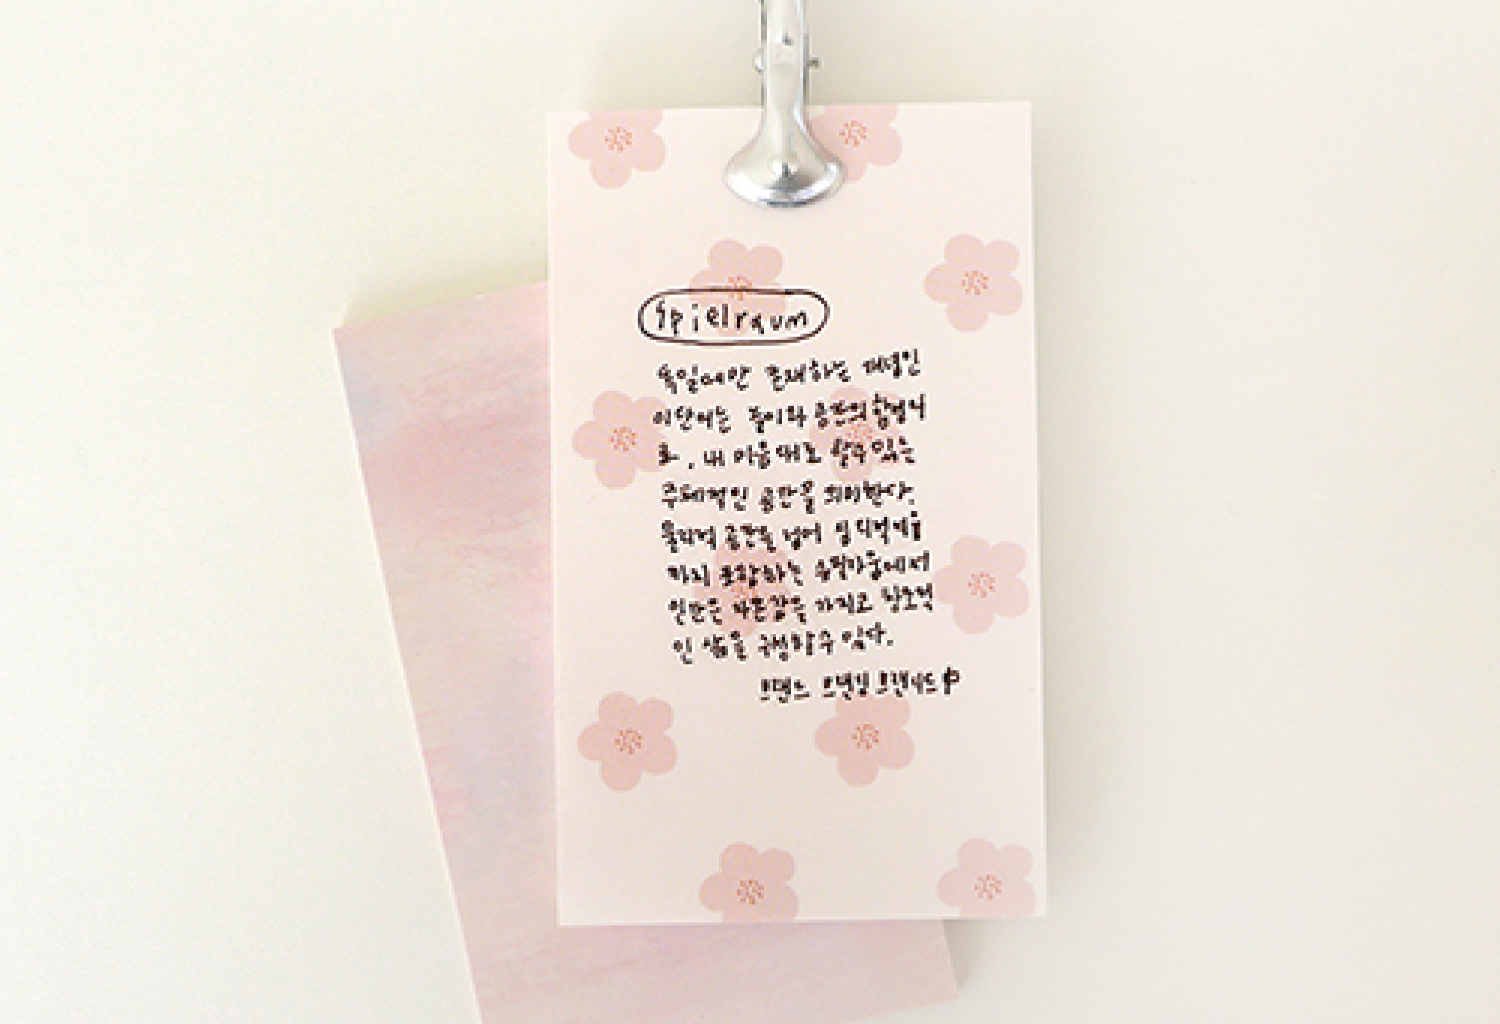 Spielraum
독일에만 존재하는 개념인
이 단어는 놀이와 공간의 합성어
로, 내 마음대로 할 수 있는
주체적인 공간을 의미한다.
물리적 공간을 넘어 심리적 여유
까지 포함하는 슈필라움에서
인간은 자존감을 가지고
인 삶을 구성할 수 있다.